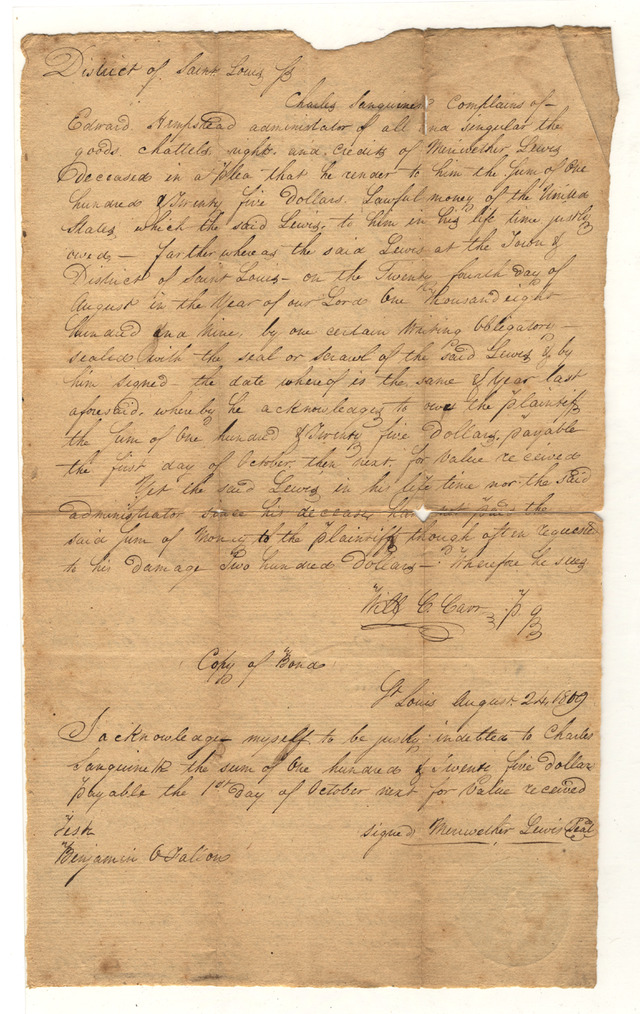 District of Saint Louis ss
Charles Sanguinett Complains of —
Edward Hempstead administrator of all and singular the
goods, chattels, rights, and credits of Meriwether Lewis
deceased in a plea that he render to him the Sum of One
hundred & Twenty five Dollars, Lawful money of the United
States, which the said Lewis, to him in his life time, justly
owed, — for that whereas the said Lewis at the Town &
District of Saint Louis — on the Twenty fourth day of
August in the Year of our Lord One Thousand eight
hundred and Nine, by one certain Writing Obligatory —
sealed with the seal or scrawl of the said Lewis & by
him signed — the date whereof is the same & Year last
aforesaid, whereby he acknowledges to owe the plaintiff
the Sum of One hundred & Twenty five Dollars, payable
the first day of October then next, for Value received
Yet the said Lewis in his life time nor the said
administrator since his decease have not paid the
said Sum of Money to the plaintiff though often requested
to his damage Two hundred Dollars — Wherefore he sues
Will C. Carr, p. q
Copy of Bond
St Louis August 24, 1809
I acknowledge myself to be justly indebted to Charles
Sanguinett the sum of One hundred & Twenty five Dollars
payable the 1st Day of October next for Value received
Test
signed Meriwether Lewis Seal
Benjamin O Fallon